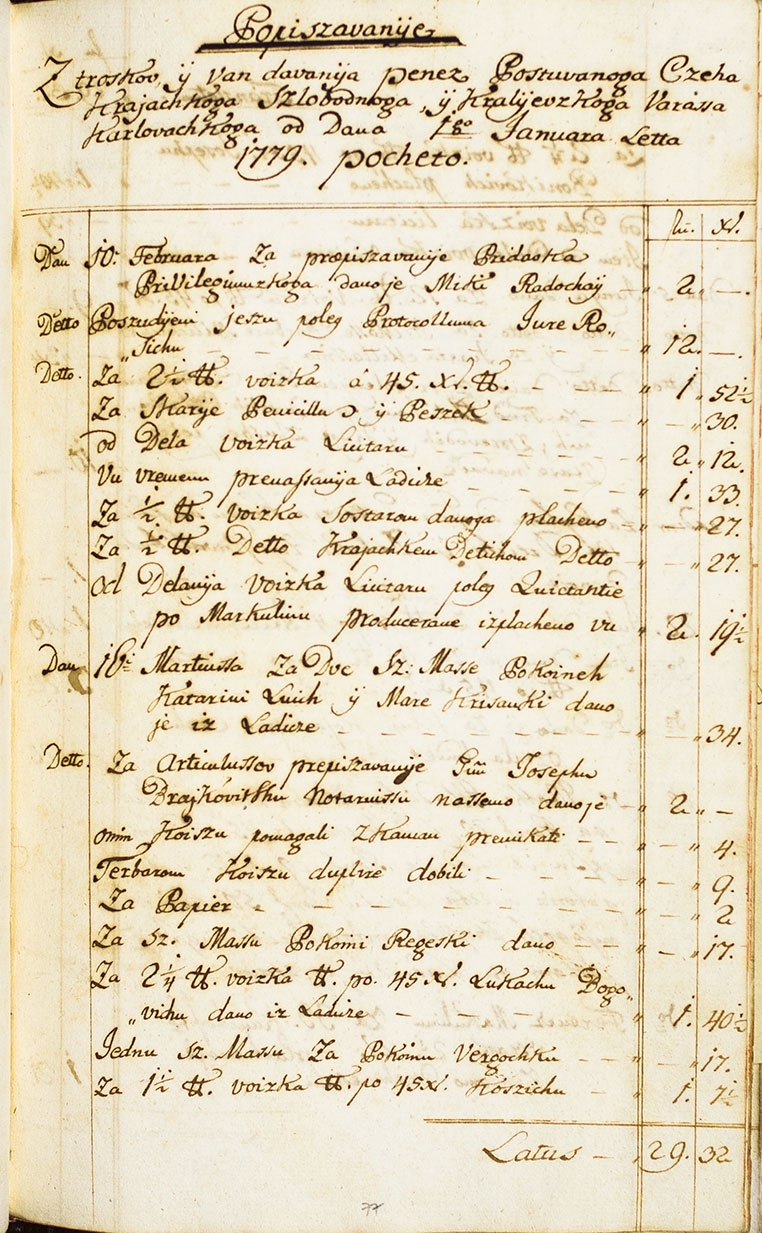 Popiszavanije
Ztroskov, ÿ van davanija penez Postuvanoga Czeha
Krajachkoga Szlobodnoga, ÿ Kralyevzkoga Varassa
Karlovachkoga od Dana 1go Januara Letta
1779. pocheto.
fn. xr.
Dan 10: Februara Za prepiszavanije Pridavka
Privilegiumzkoga dano je Miki Radochaÿ — " 2 " —.
Detto Poszudjeni jeszu poleg Protocolluma Jure Ro„
„sichu — — — — — — — " 12. —.
Detto. Za 2½ ℔. voizka á 45. xr. ℔. — — — " 1 " 52½
Za Skarije Penicillu ÿ Peszek — — " — " 30.
od Dela voizka Licitaru — — — — " 2 " 12.
Vu vremenu prenassanija Ladicze — — — " 1. 33.
Za ½ ℔. voizka Sostarom danoga placheno — " — " 27.
Za ½ ℔. Detto Krajachkem Detichom Detto " — " 27.
od Delanija voizka Licitaru poleg Quietantie
po Markulinu producerane izplacheno vu " 2. 19½
Dan 16i Martiussa Za Dve Sz: Masse Pokoineh
Katarini ÿ Mare Krisanki dano
je iz Ladicze — — — — — — — " — " 34.
Detto. Za Articulussov prepiszavanije Gnu Josephu
Notariussu nassemo dano je — " 2 " —
onim Koiszu pomagali z Kaman premikati — — " — " 4.
Terbarom Koiszu duplire dobili — — — " — " 9.
Za Papier — — — — — — — — " — " 2
Za sz. Massu Pokoini Regeski dano — — " — " 17.
Za 2¼ ℔. voizka ℔. po. 45 xr. Lukachu Bogo„
„vichu dano iz Ladicze — — — — " 1. 40½
Jednu Sz. Massu Za Pokoinu Vergochku — — " — " 17.
Za 1½ ℔. voizka ℔. po 45 xr. Koszichu — " 1. 7½
Latus — " 29. 32
77